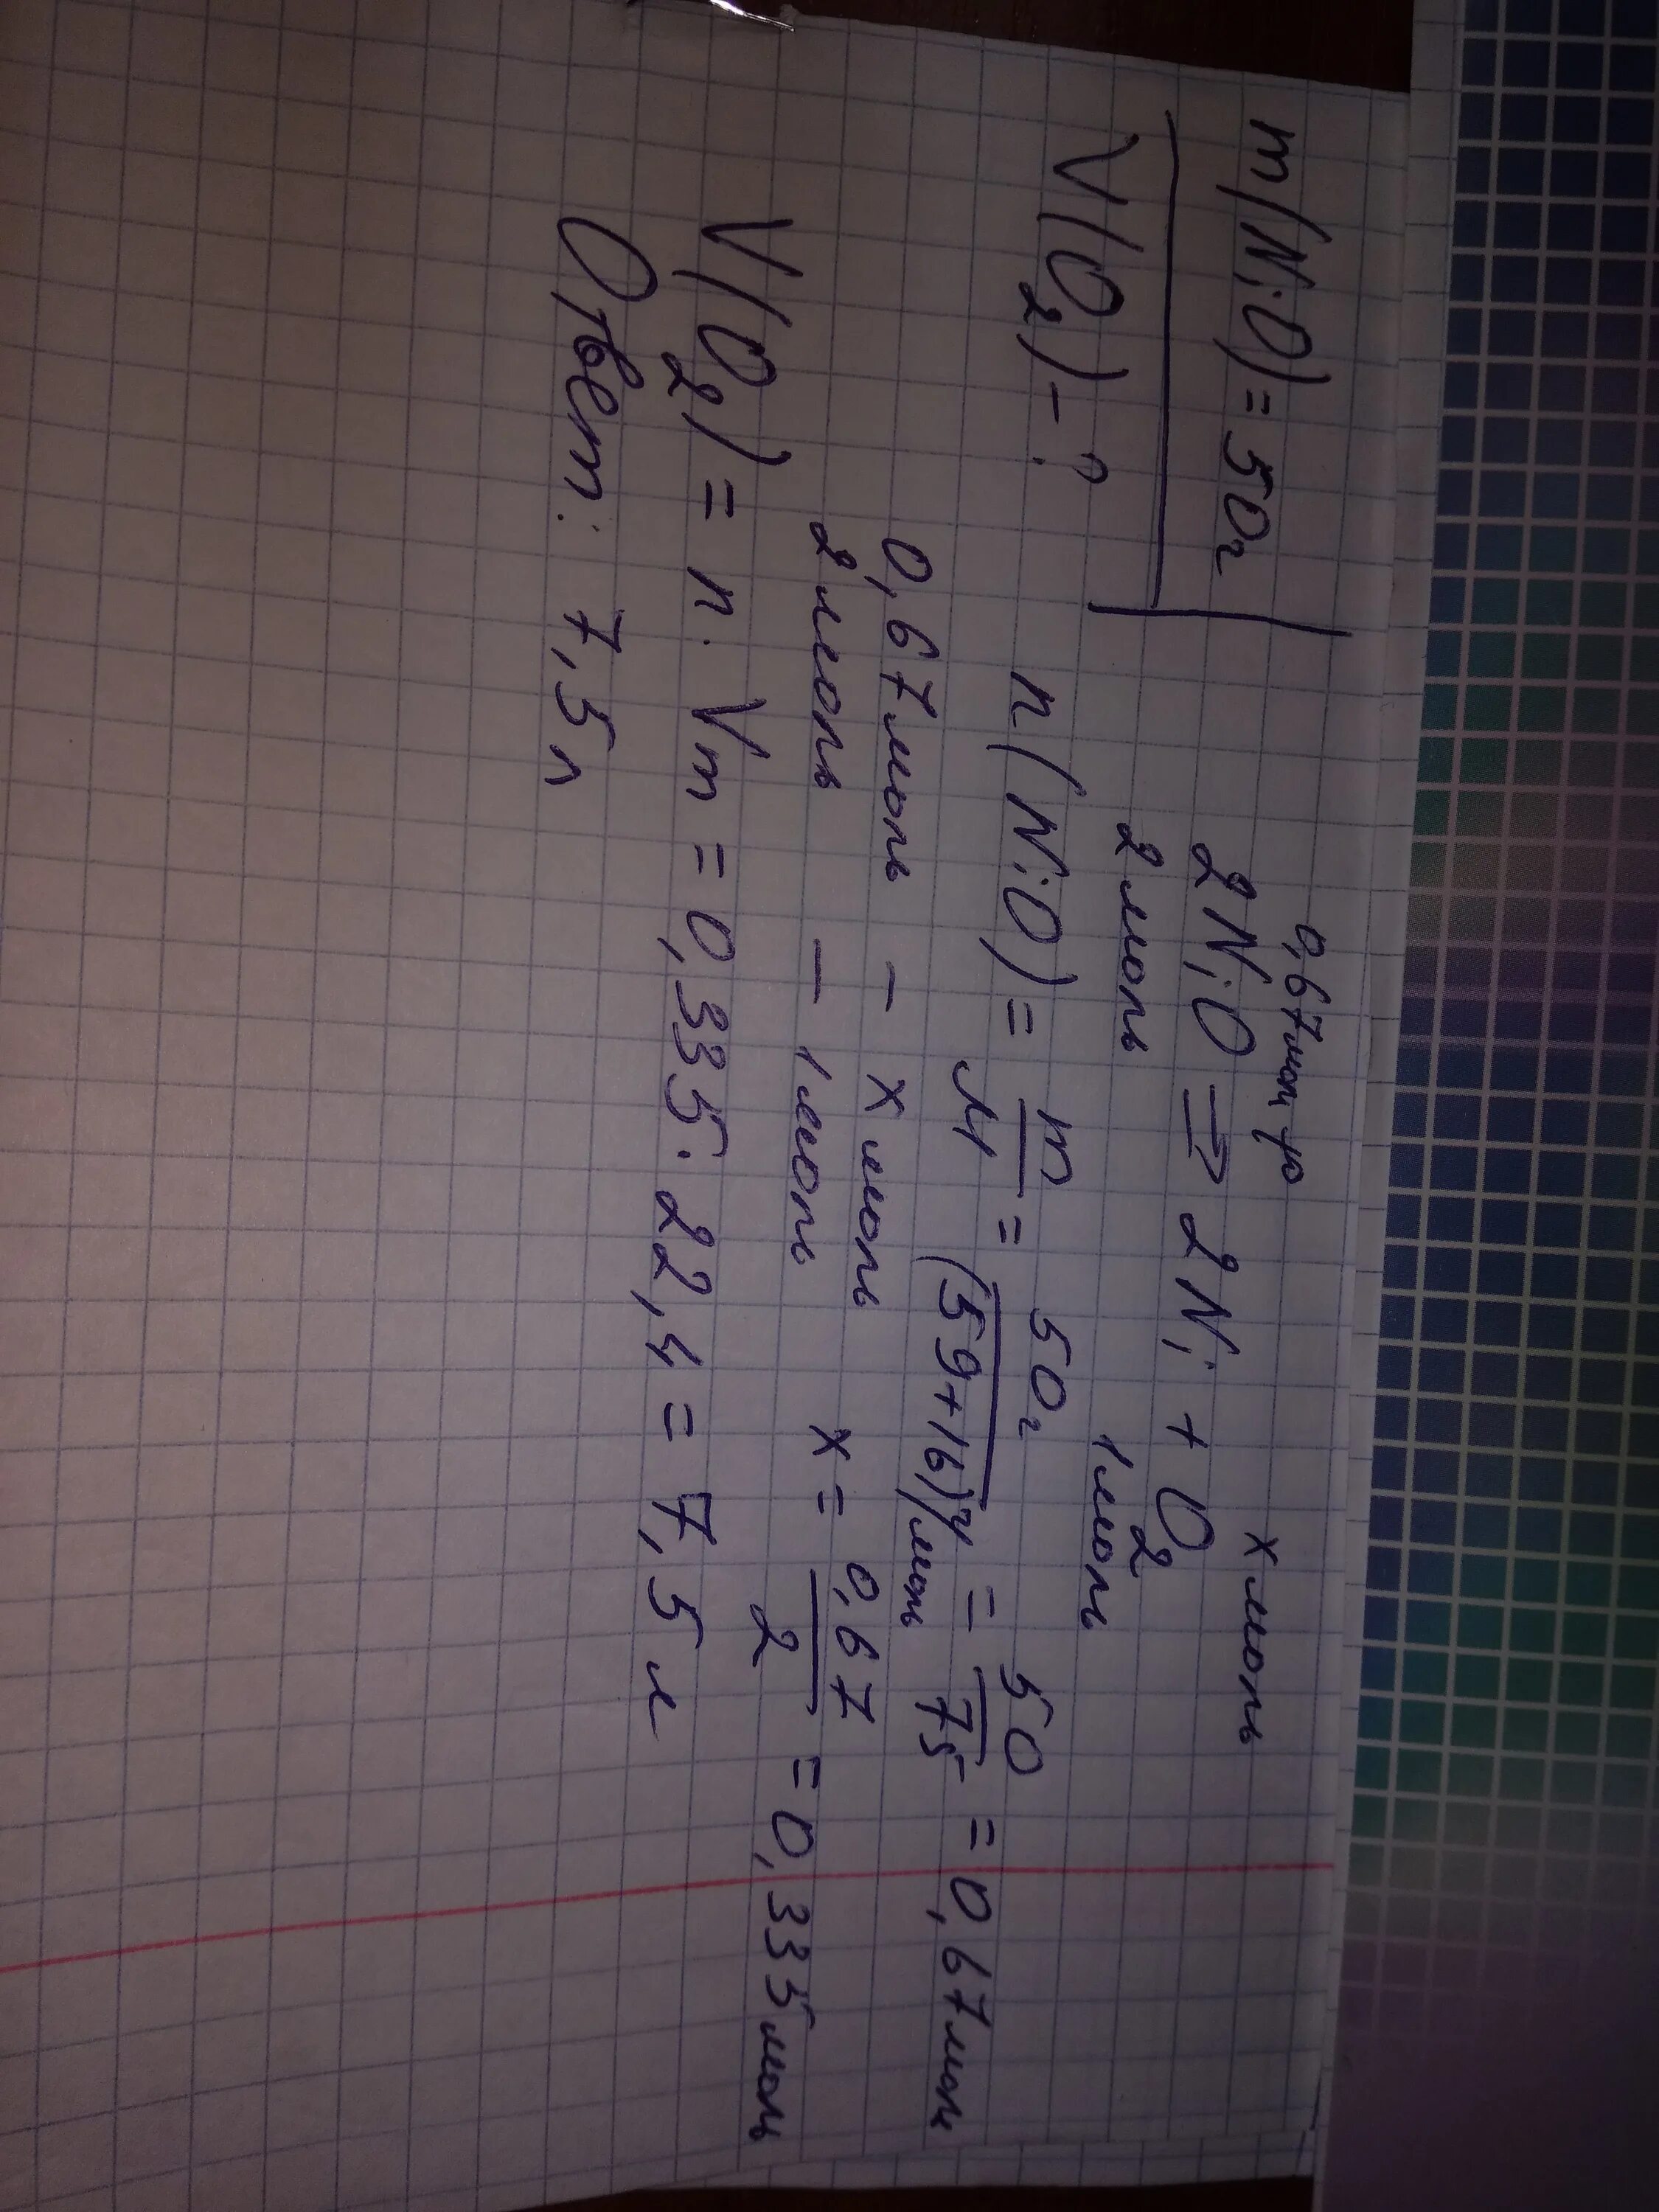 0,67моль х моль
m(NiO) = 50г 2NiO ⇒ 2Ni + O2
V(O2) - ? 2 моль 1 моль
n(NiO) = m/M = 50г/(59+16)г/моль = 50/75 = 0,67моль
0,67моль - х моль
2 моль - 1 моль х = 0,67/2 = 0,335 моль
V(O2) = n · Vm = 0,335 · 22,4 = 7,5 л
Ответ: 7,5 л